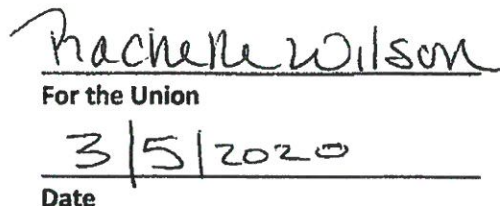 Rachelle Wilson
For the Union
3/5/2020
Date